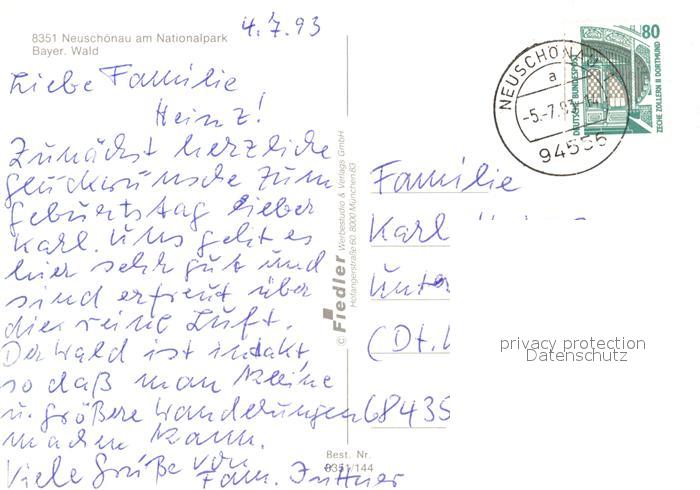 8351 Neuschönau am Nationalpark
Bayer. Wald
4.7.93
Liebe Familie
Heinz!
Zunächst herzliche
glückwünsche zum
geburtstag lieber
Karl. Uns geht es
hier sehr gut und
sind erfreut über
die reine Luft.
Der Wald ist intakt,
so daß man kleine
u. größere Wanderungen
machen kann.
Viele Grüße von
Fam.
© Fiedler Werbestudio & Verlags GmbH
Hofangerstraße 60, 8000 München 83
Best. Nr.
8351/144
NEUSCHÖNAU
a
-5.-7.93-14
94556
80
DEUTSCHE BUNDESPOST
ZECHE ZOLLERN II DORTMUND
Familie
Karl
Unter
(Dt.
68435
privacy protection
Datenschutz